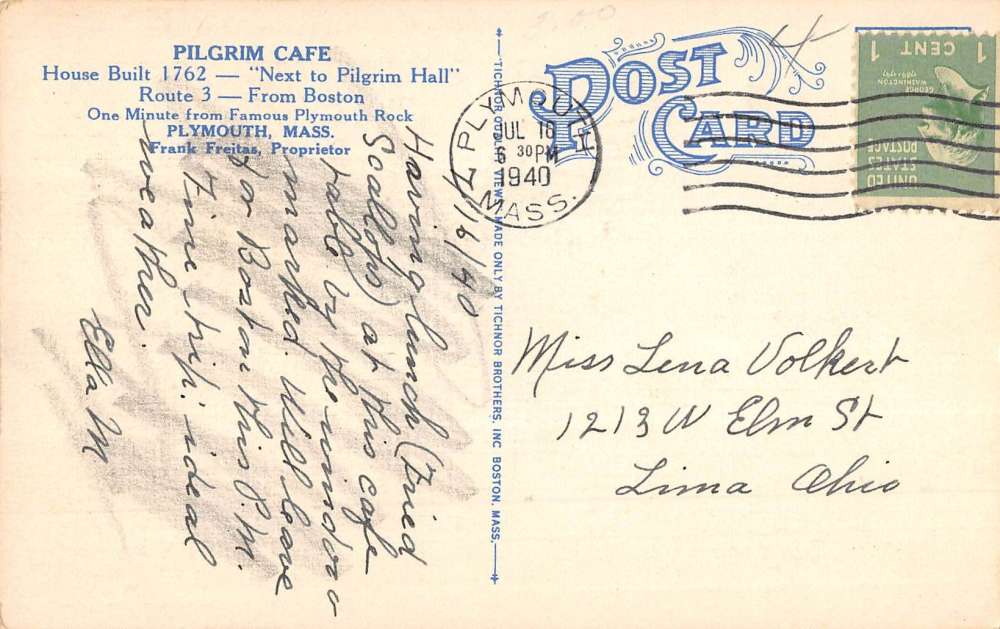 PILGRIM CAFE
House Built 1762 — "Next to Pilgrim Hall"
Route 3 — From Boston
One Minute from Famous Plymouth Rock
PLYMOUTH, MASS.
Frank Freitas, Proprietor
7/16/40
Having lunch (Fried
Scallops) at this cafe
table by the window
marked. Will leave
for Boston this P.M.
Fine trip. ideal
weather.
Ella M
"TICHNOR QUALITY VIEWS," MADE ONLY BY TICHNOR BROTHERS, INC. BOSTON, MASS.
POST
CARD
4
PLYMOUTH
JUL 16
6 30PM
1940
MASS.
1 CENT 1
GEORGE
WASHINGTON
1789-1797
UNITED
STATES
POSTAGE
Miss Lena Volkert
1213 W Elm St
Lima Ohio